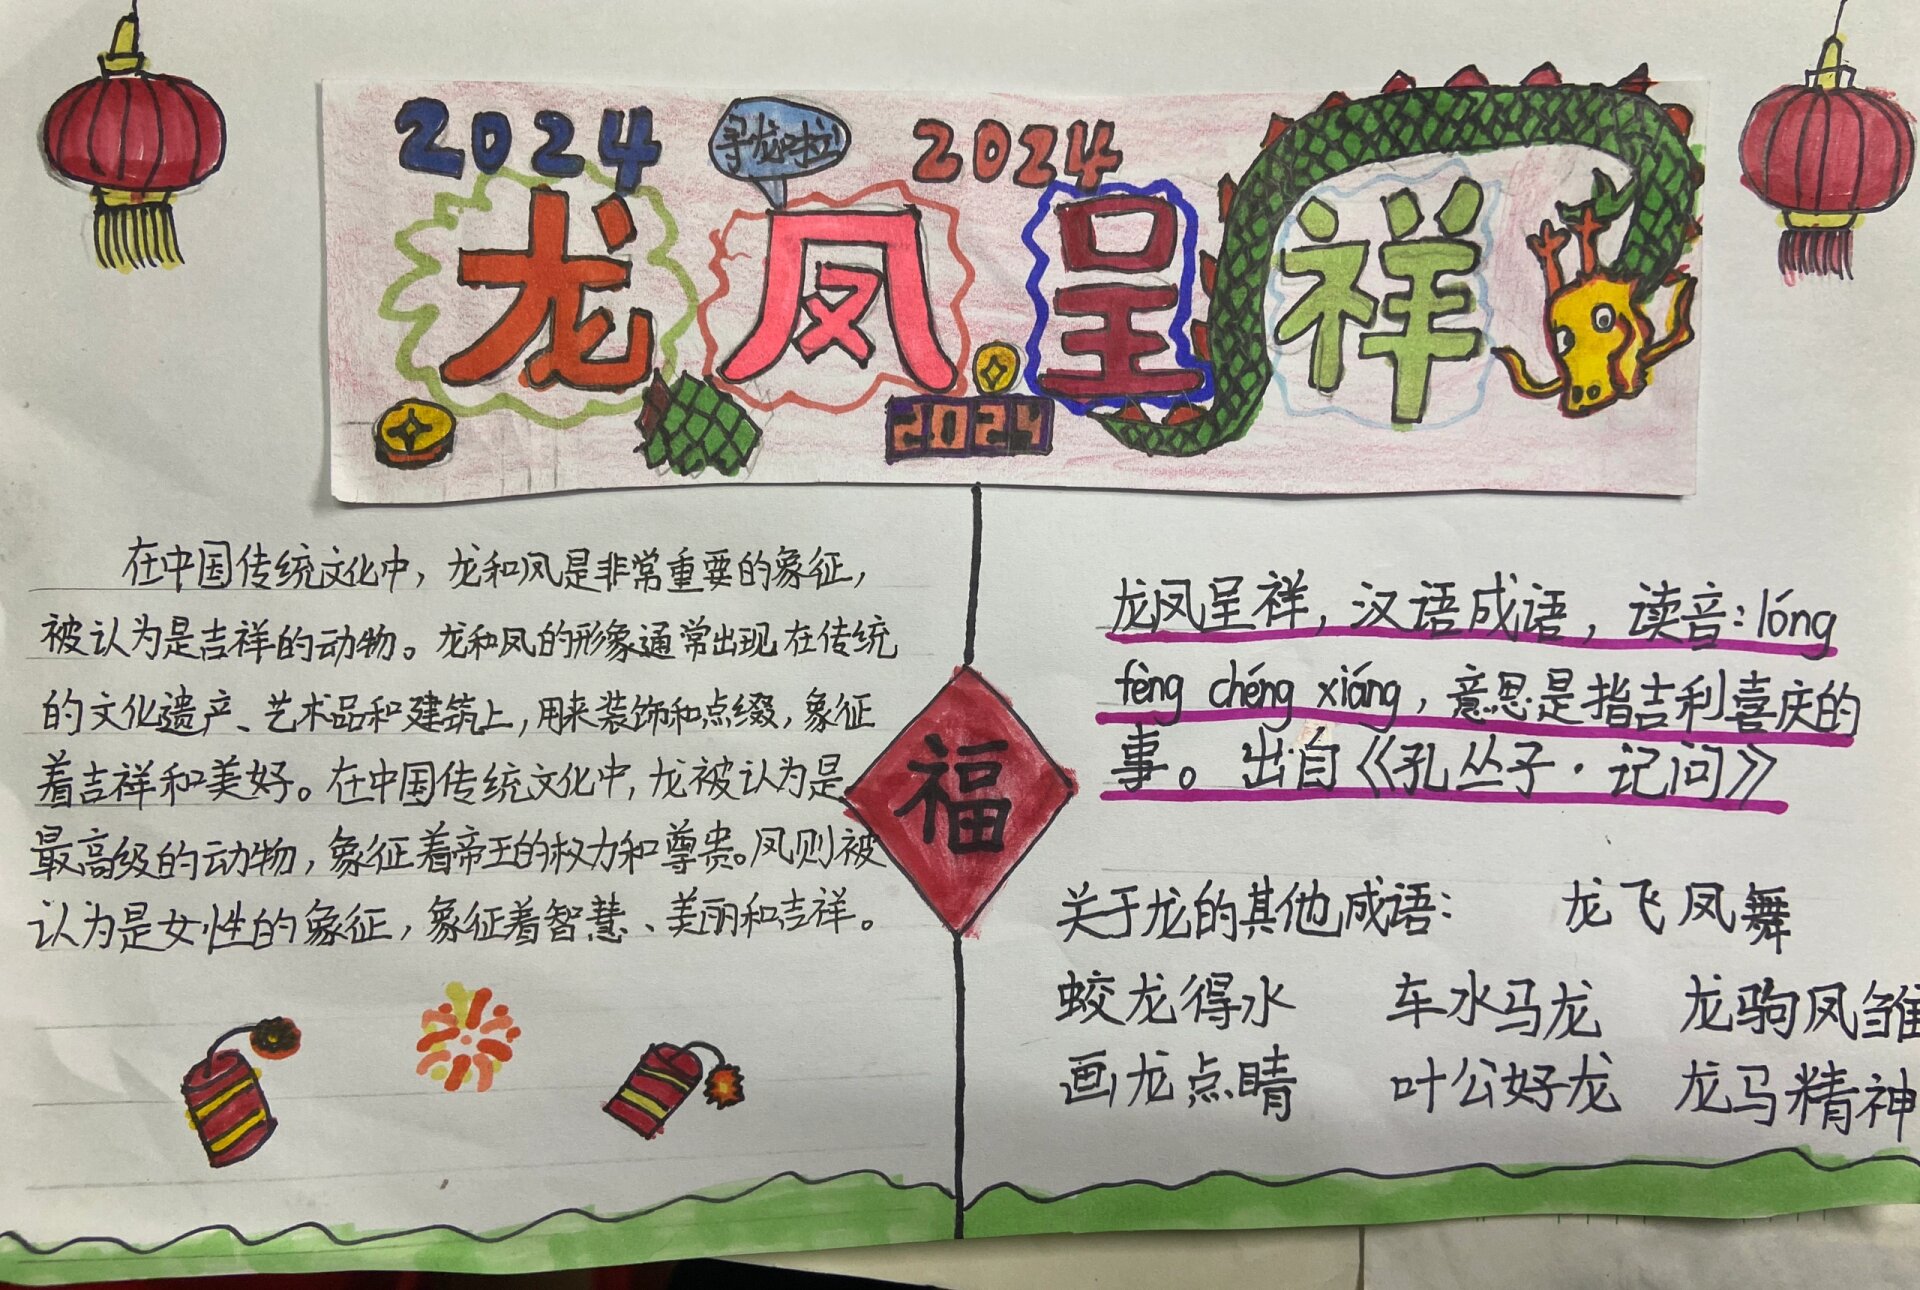 2024
寻龙啦
2024
龙凤呈祥
2024
在中国传统文化中，龙和凤是非常重要的象征，
被认为是吉祥的动物。龙和凤的形象通常出现在传统
的文化遗产、艺术品和建筑上，用来装饰和点缀，象征
着吉祥和美好。在中国传统文化中，龙被认为是
最高级的动物，象征着帝王的权力和尊贵。凤则被
认为是女性的象征，象征着智慧、美丽和吉祥。
福
龙凤呈祥，汉语成语，读音：lóng
fèng chéng xiáng，意思是指吉利喜庆的
事。出自《孔丛子·记问》
关于龙的其他成语： 龙飞凤舞
蛟龙得水 车水马龙 龙驹凤雏
画龙点睛 叶公好龙 龙马精神